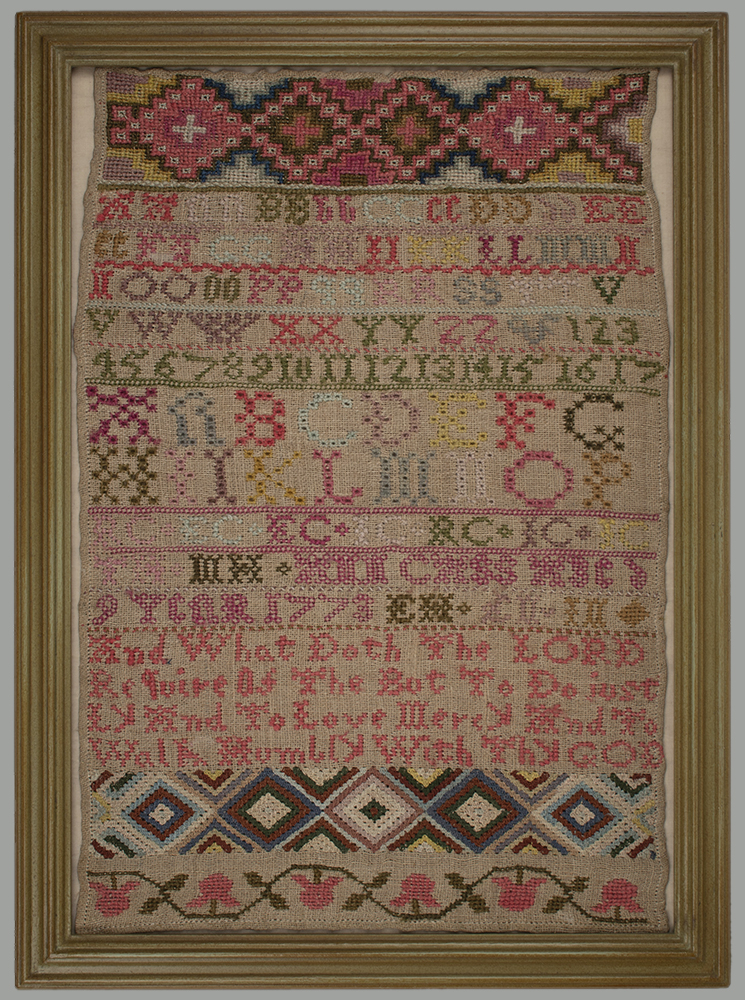 A A B B b b C C c c D D E E
F F G G I I K K L L M M I
I O O P P q q R R S S T T V
V W W X X Y Y Z Z 1 2 3
4 5 6 7 8 9 10 11 12 13 14 15 16 17
A A B C D E F G
H I K L M N O P
EC EC IC RC IC
MH
YEAR 1773 EH
And What Doth The LORD
Require Of The But To Do iost
Ly And To Love Mercy And To
Walk Humbly With Thy GOD